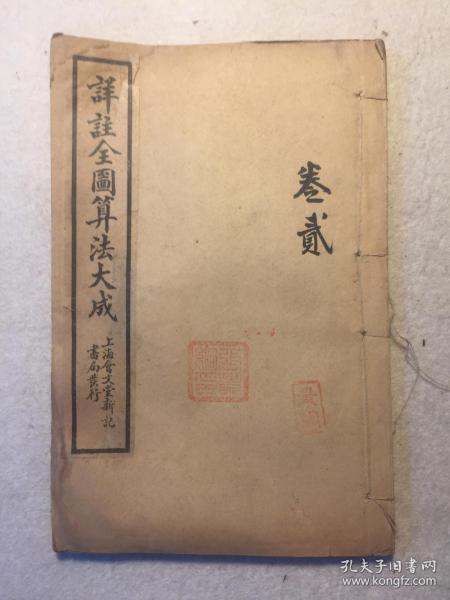 詳註全圖算法大成
上海會文堂新記
書局發行
卷貳
孔夫子旧书网
www.kongfz.com